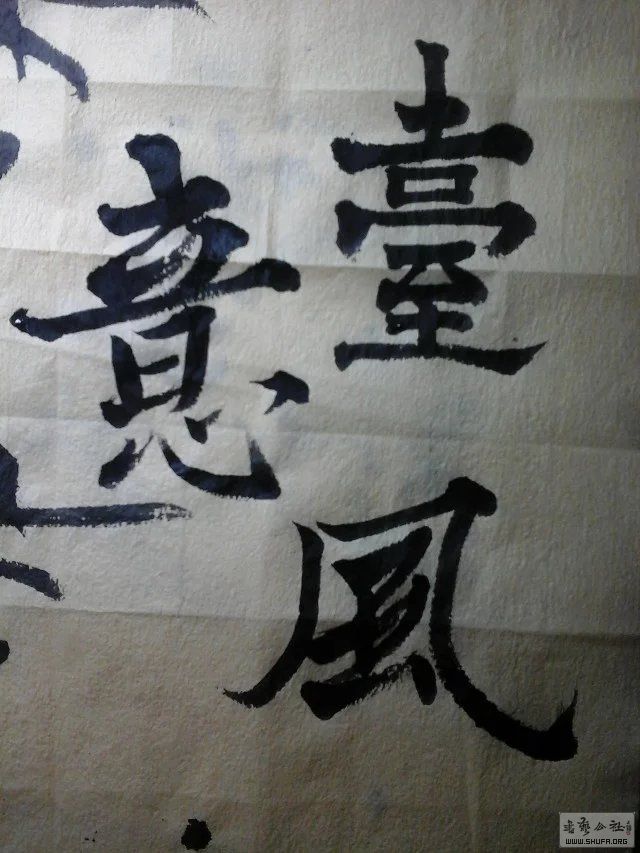 臺風
意
書藝公社
WWW.SHUFA.ORG